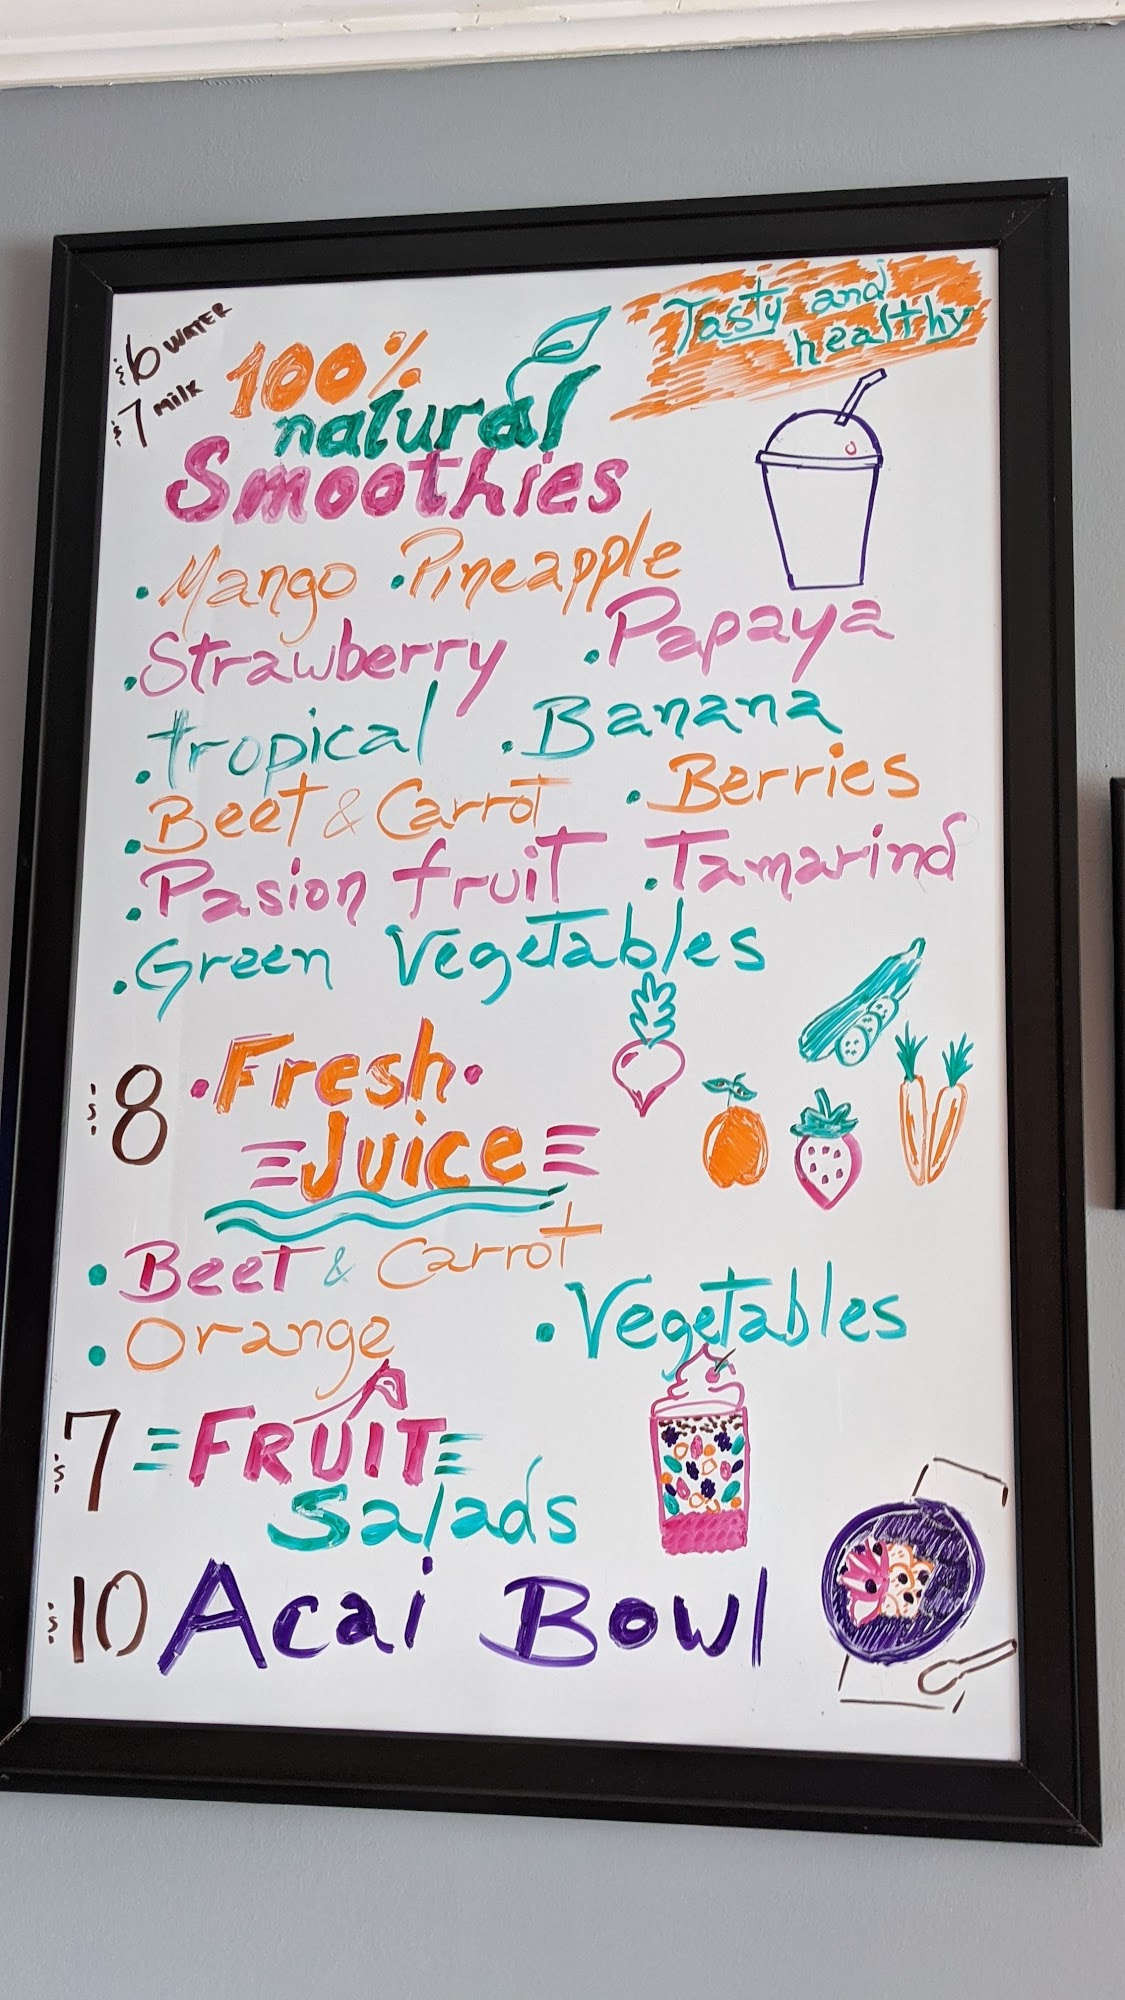 $6 WATER
$7 Milk
100%
natural
Smoothies
Tasty and
healthy
.Mango .Pineapple
.Strawberry .Papaya
.tropical .Banana
.Beet & Carrot .Berries
.Pasion fruit .Tamarind
.Green Vegetables
$8 .Fresh.
Juice
.Beet & Carrot
.Orange .Vegetables
$7 FRUIT
Salads
$10 Acai Bowl